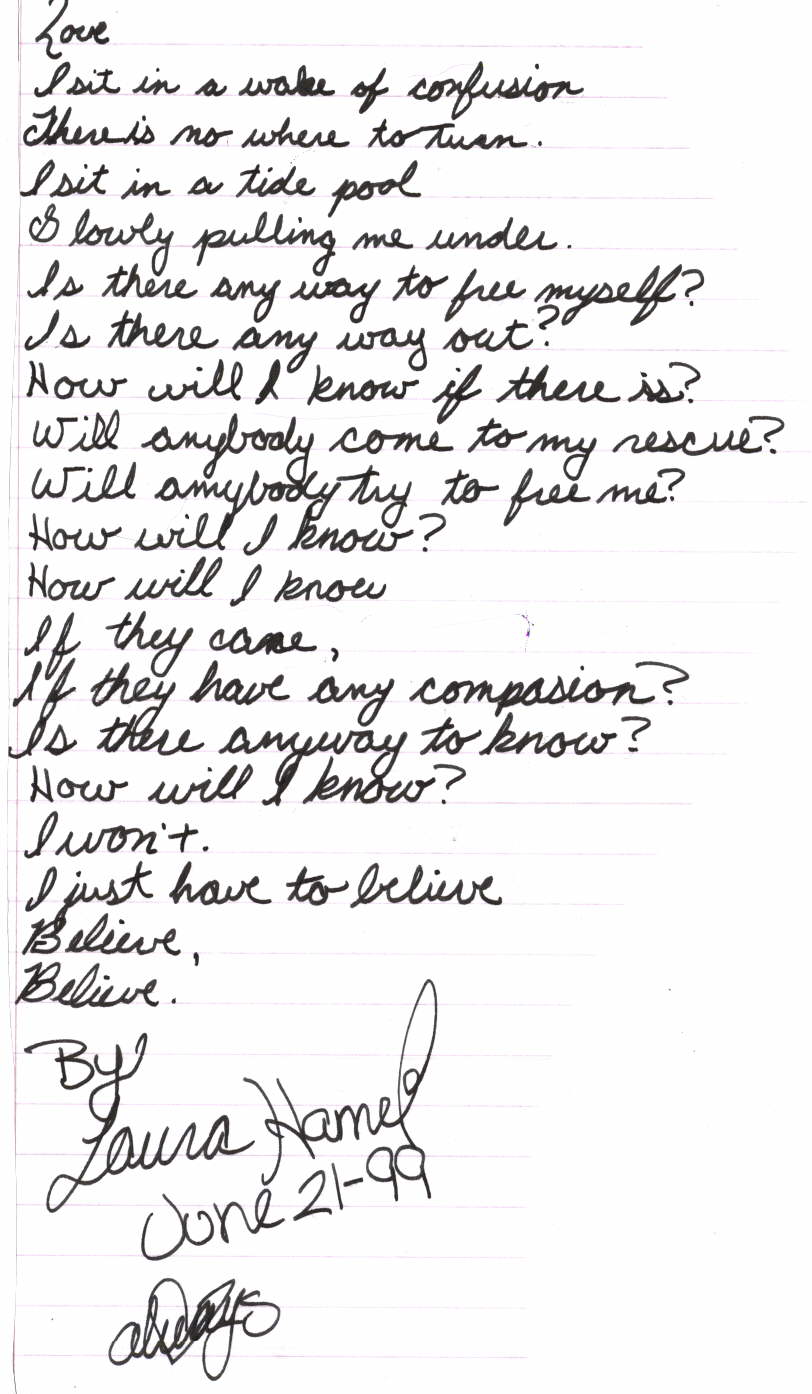 Love
I sit in a wake of confusion
There is no where to turn.
I sit in a tide pool
Slowly pulling me under.
Is there any way to free myself?
Is there any way out?
How will I know if there is?
Will anybody come to my rescue?
Will amybody try to free me?
How will I know?
How will I know
If they care,
If they have any compasion?
Is there anyway to know?
How will I know?
I won't.
I just have to believe
Believe,
Believe.
By
Laura Hamel
June 21-99
always